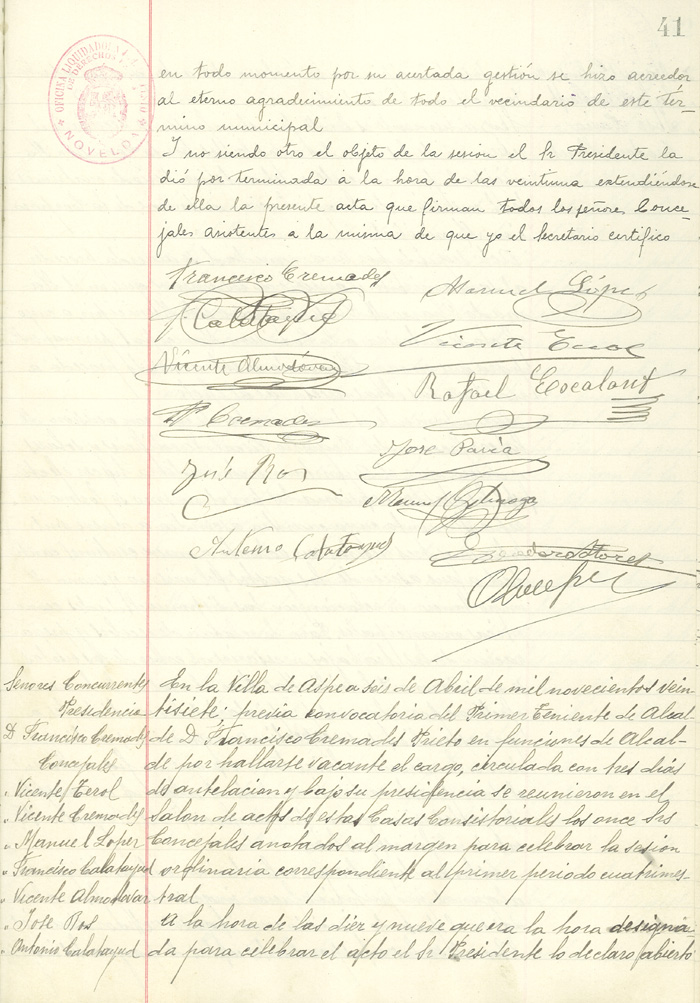 41
OFICINA LIQUIDADORA
DE DERECHOS
NOVELDA
en todo momento por su acertada gestión se hizo acreedor
al eterno agradecimiento de todo el vecindario de este tér-
mino municipal
I no siendo otro el objeto de la sesion el Sr Presidente la
dió por terminada á la hora de las veintiuna extendiéndose
de ella la presente acta que firman todos los señores Conce-
jales asistentes a la misma de que yo el Secretario certifico
Francisco Cremades
Manuel López
F. Calatayud
Vicente
Vicente Almodóvar
Rafael
V. Cremades
José Pavía
José Ros
Manuel
Antonio Calatayud
Señores Concurrentes
Presidencia
D Francisco Cremades
Concejales
" Vicente Terol
" Vicente Cremades
" Manuel Lopez
" Francisco Calatayud
" Vicente Almodovar
" Jose Ros
" Antonio Calatayud
En la Villa de Aspe a seis de Abril de mil novecientos vein-
tisiete; previa convocatoria del Primer Teniente de Alcal-
de D Francisco Cremades Prieto en funciones de Alcal-
de por hallarse vacante el cargo, circulada con tres dias
de antelacion y bajo su presidencia se reunieron en el
salon de actos de estas Casas Consistoriales los once Srs
Concejales anotados al margen para celebrar la sesion
ordinaria correspondiente al primer periodo cuatrimes-
tral
A la hora de las diez y nueve que era la hora designa
da para celebrar el acto el Sr Presidente lo declaro abierto